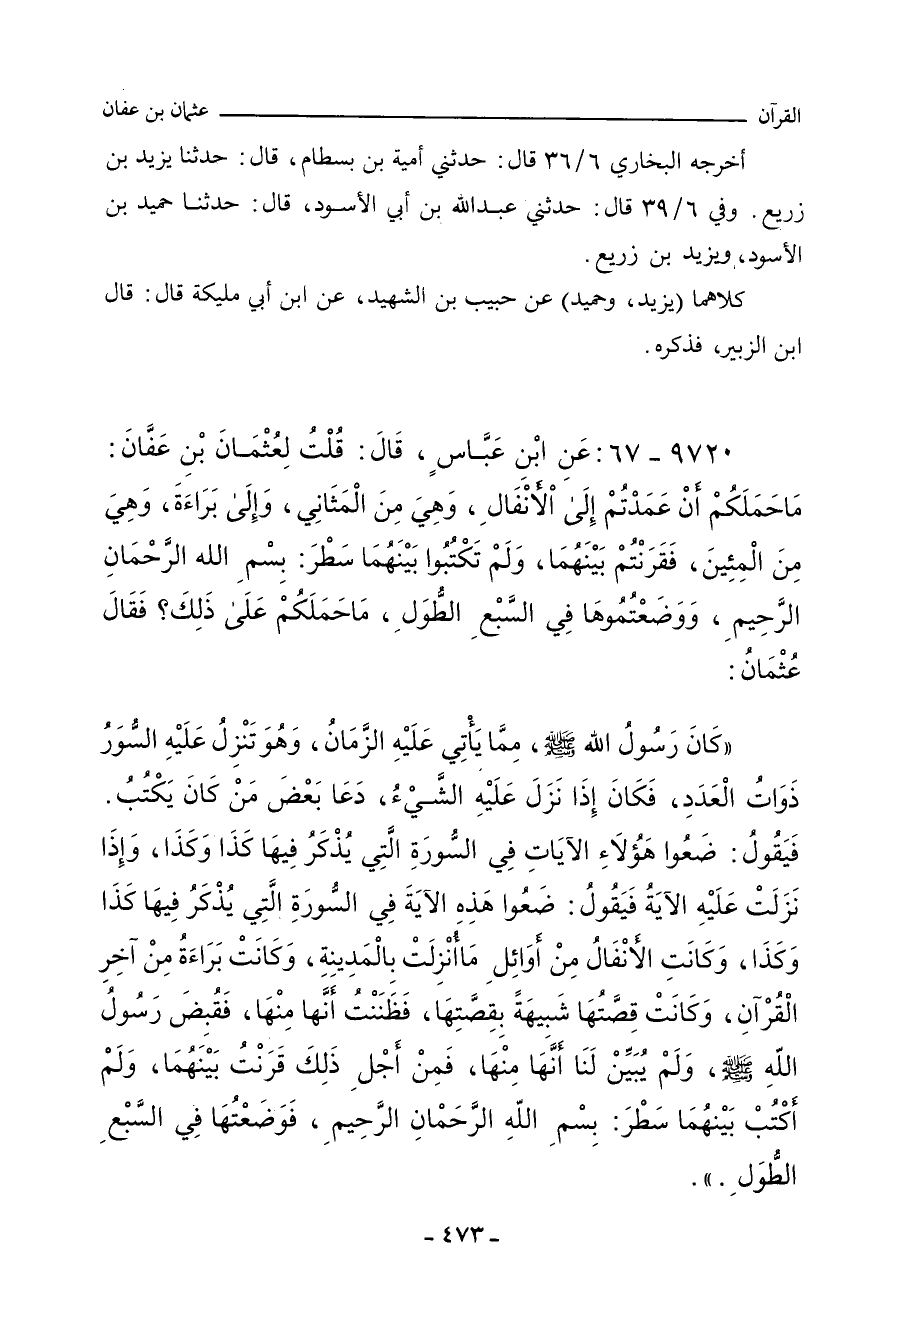 القرآن ـــــــــــــ عثمان بن عفان
أخرجه البخاري ٣٦/٦ قال: حدثني أمية بن بسطام، قال: حدثنا يزيد بن
زريع. وفي ٣٩/٦ قال: حدثني عبدالله بن أبي الأسود، قال: حدثنا حميد بن
الأسود، ويزيد بن زريع.
كلاهما (يزيد، وحميد) عن حبيب بن الشهيد، عن ابن أبي مليكة قال: قال
ابن الزبير، فذكره.
٩٧٢٠ ـ ٦٧: عَنِ ابْنِ عَبَّاسٍ، قَالَ: قُلْتُ لِعُثْمَانَ بْنِ عَفَّانَ:
مَاحَمَلَكُمْ أَنْ عَمَدْتُمْ إِلَىٰ الْأَنْفَالِ، وَهِيَ مِنَ الْمَثَانِي، وَإِلَىٰ بَرَاءَةَ، وَهِيَ
مِنَ الْمِئِينَ، فَقَرَنْتُمْ بَيْنَهُمَا، وَلَمْ تَكْتُبُوا بَيْنَهُمَا سَطْرَ: بِسْمِ الله الرَّحْمَانِ
الرَّحِيمِ، وَوَضَعْتُمُوهَا فِي السَّبْعِ الطُّوَلِ، مَاحَمَلَكُمْ عَلَىٰ ذَلِكَ؟ فَقَالَ
عُثْمَانُ:
«كَانَ رَسُولُ الله ﷺ، مِمَّا يَأْتِي عَلَيْهِ الزَّمَانُ، وَهُوَ تَنْزِلُ عَلَيْهِ السُّوَرُ
ذَوَاتُ الْعَدَدِ، فَكَانَ إِذَا نَزَلَ عَلَيْهِ الشَّيْءُ، دَعَا بَعْضَ مَنْ كَانَ يَكْتُبُ.
فَيَقُولُ: ضَعُوا هَؤُلَاءِ الآيَاتِ فِي السُّورَةِ الَّتِي يُذْكَرُ فِيهَا كَذَا وَكَذَا، وَإِذَا
نَزَلَتْ عَلَيْهِ الآيَةُ فَيَقُولُ: ضَعُوا هَذِهِ الآيَةَ فِي السُّورَةِ الَّتِي يُذْكَرُ فِيهَا كَذَا
وَكَذَا، وَكَانَتِ الأَنْفَالُ مِنْ أَوَائِلِ مَاأُنْزِلَتْ بِالْمَدِينِةِ، وَكَانَتْ بَرَاءَةُ مِنْ آخِرِ
الْقُرْآنِ، وَكَانَتْ قِصَّتُهَا شَبِيهَةً بِقِصَّتِهَا، فَظَنَنْتُ أَنَّها مِنْهَا، فَقُبِضَ رَسُولُ
اللَّهِ ﷺ، وَلَمْ يُبَيِّنْ لَنَا أَنَّهَا مِنْهَا، فَمِنْ أَجْلِ ذَلِكَ قَرَنْتُ بَيْنَهُمَا، وَلَمْ
أَكْتُبْ بَيْنَهُمَا سَطْرَ: بِسْمِ اللَّهِ الرَّحْمَانِ الرَّحِيمِ، فَوَضَعْتُهَا فِي السَّبْعِ
الطُّوَلِ.».
ـ ٤٧٣ ـ